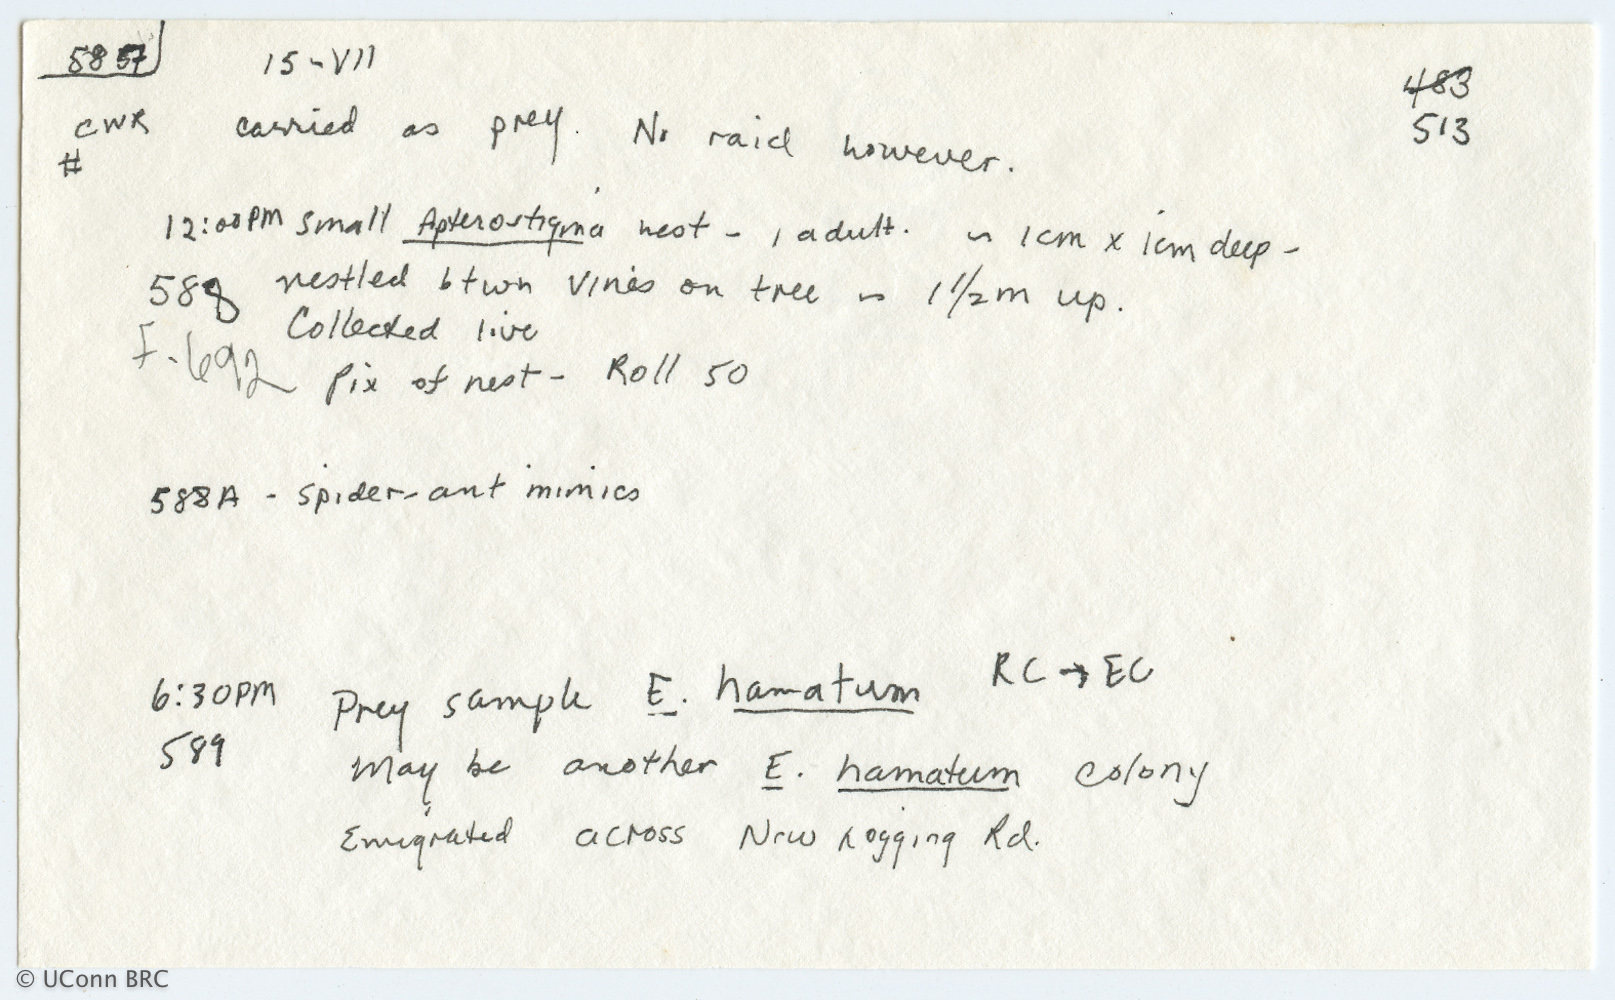 587 15-VII
483
CWR carried as prey. No raid however. 513
#
12:00PM Small Apterostigma nest - 1 adult. ~ 1cm x 1cm deep -
588 nestled btwn vines on tree ~ 1 1/2m up.
Collected live
F.692 Pix of nest - Roll 50
588A - spider-ant mimics
6:30PM Prey sample E. hamatum RC → EC
589 May be another E. hamatum colony
Emigrated across New Logging Rd.
© UConn BRC